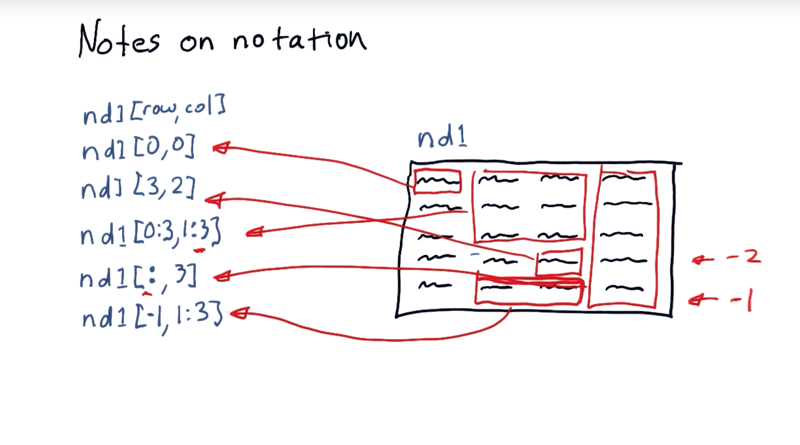 Notes on notation
nd1[row,col]
nd1[0,0]
nd1
nd1[3,2]
nd1[0:3,1:3]
nd1[:,3]
-2
-1
nd1[-1,1:3]